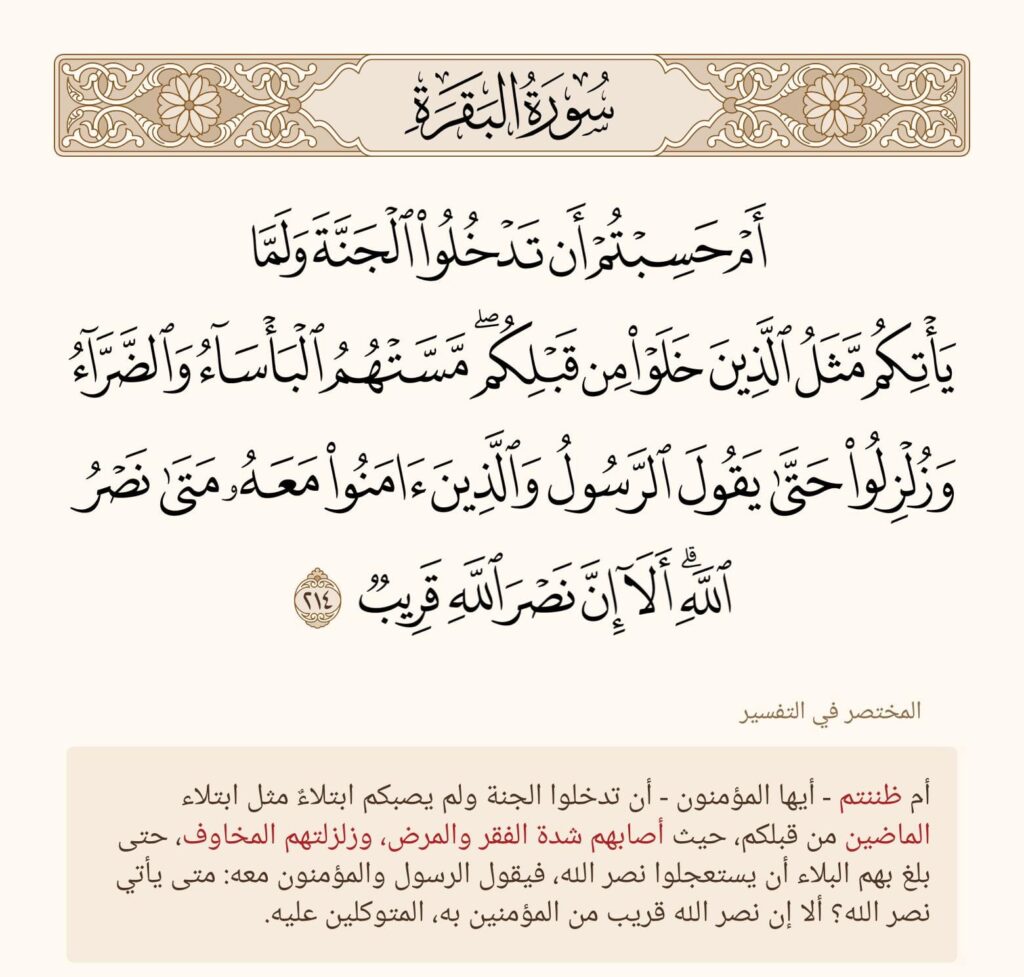 سُورَةُ البَقَرَةِ
أَمْ حَسِبْتُمْ أَن تَدْخُلُوا۟ ٱلْجَنَّةَ وَلَمَّا
يَأْتِكُم مَّثَلُ ٱلَّذِينَ خَلَوْا۟ مِن قَبْلِكُم ۖ مَّسَّتْهُمُ ٱلْبَأْسَآءُ وَٱلضَّرَّآءُ
وَزُلْزِلُوا۟ حَتَّىٰ يَقُولَ ٱلرَّسُولُ وَٱلَّذِينَ ءَامَنُوا۟ مَعَهُۥ مَتَىٰ نَصْرُ
ٱللَّهِ ۗ أَلَآ إِنَّ نَصْرَ ٱللَّهِ قَرِيبٌ ٢١٤
المختصر في التفسير
أم ظننتم - أيها المؤمنون - أن تدخلوا الجنة ولم يصبكم ابتلاءٌ مثل ابتلاء
الماضين من قبلكم، حيث أصابهم شدة الفقر والمرض، وزلزلتهم المخاوف، حتى
بلغ بهم البلاء أن يستعجلوا نصر الله، فيقول الرسول والمؤمنون معه: متى يأتي
نصر الله؟ ألا إن نصر الله قريب من المؤمنين به، المتوكلين عليه.